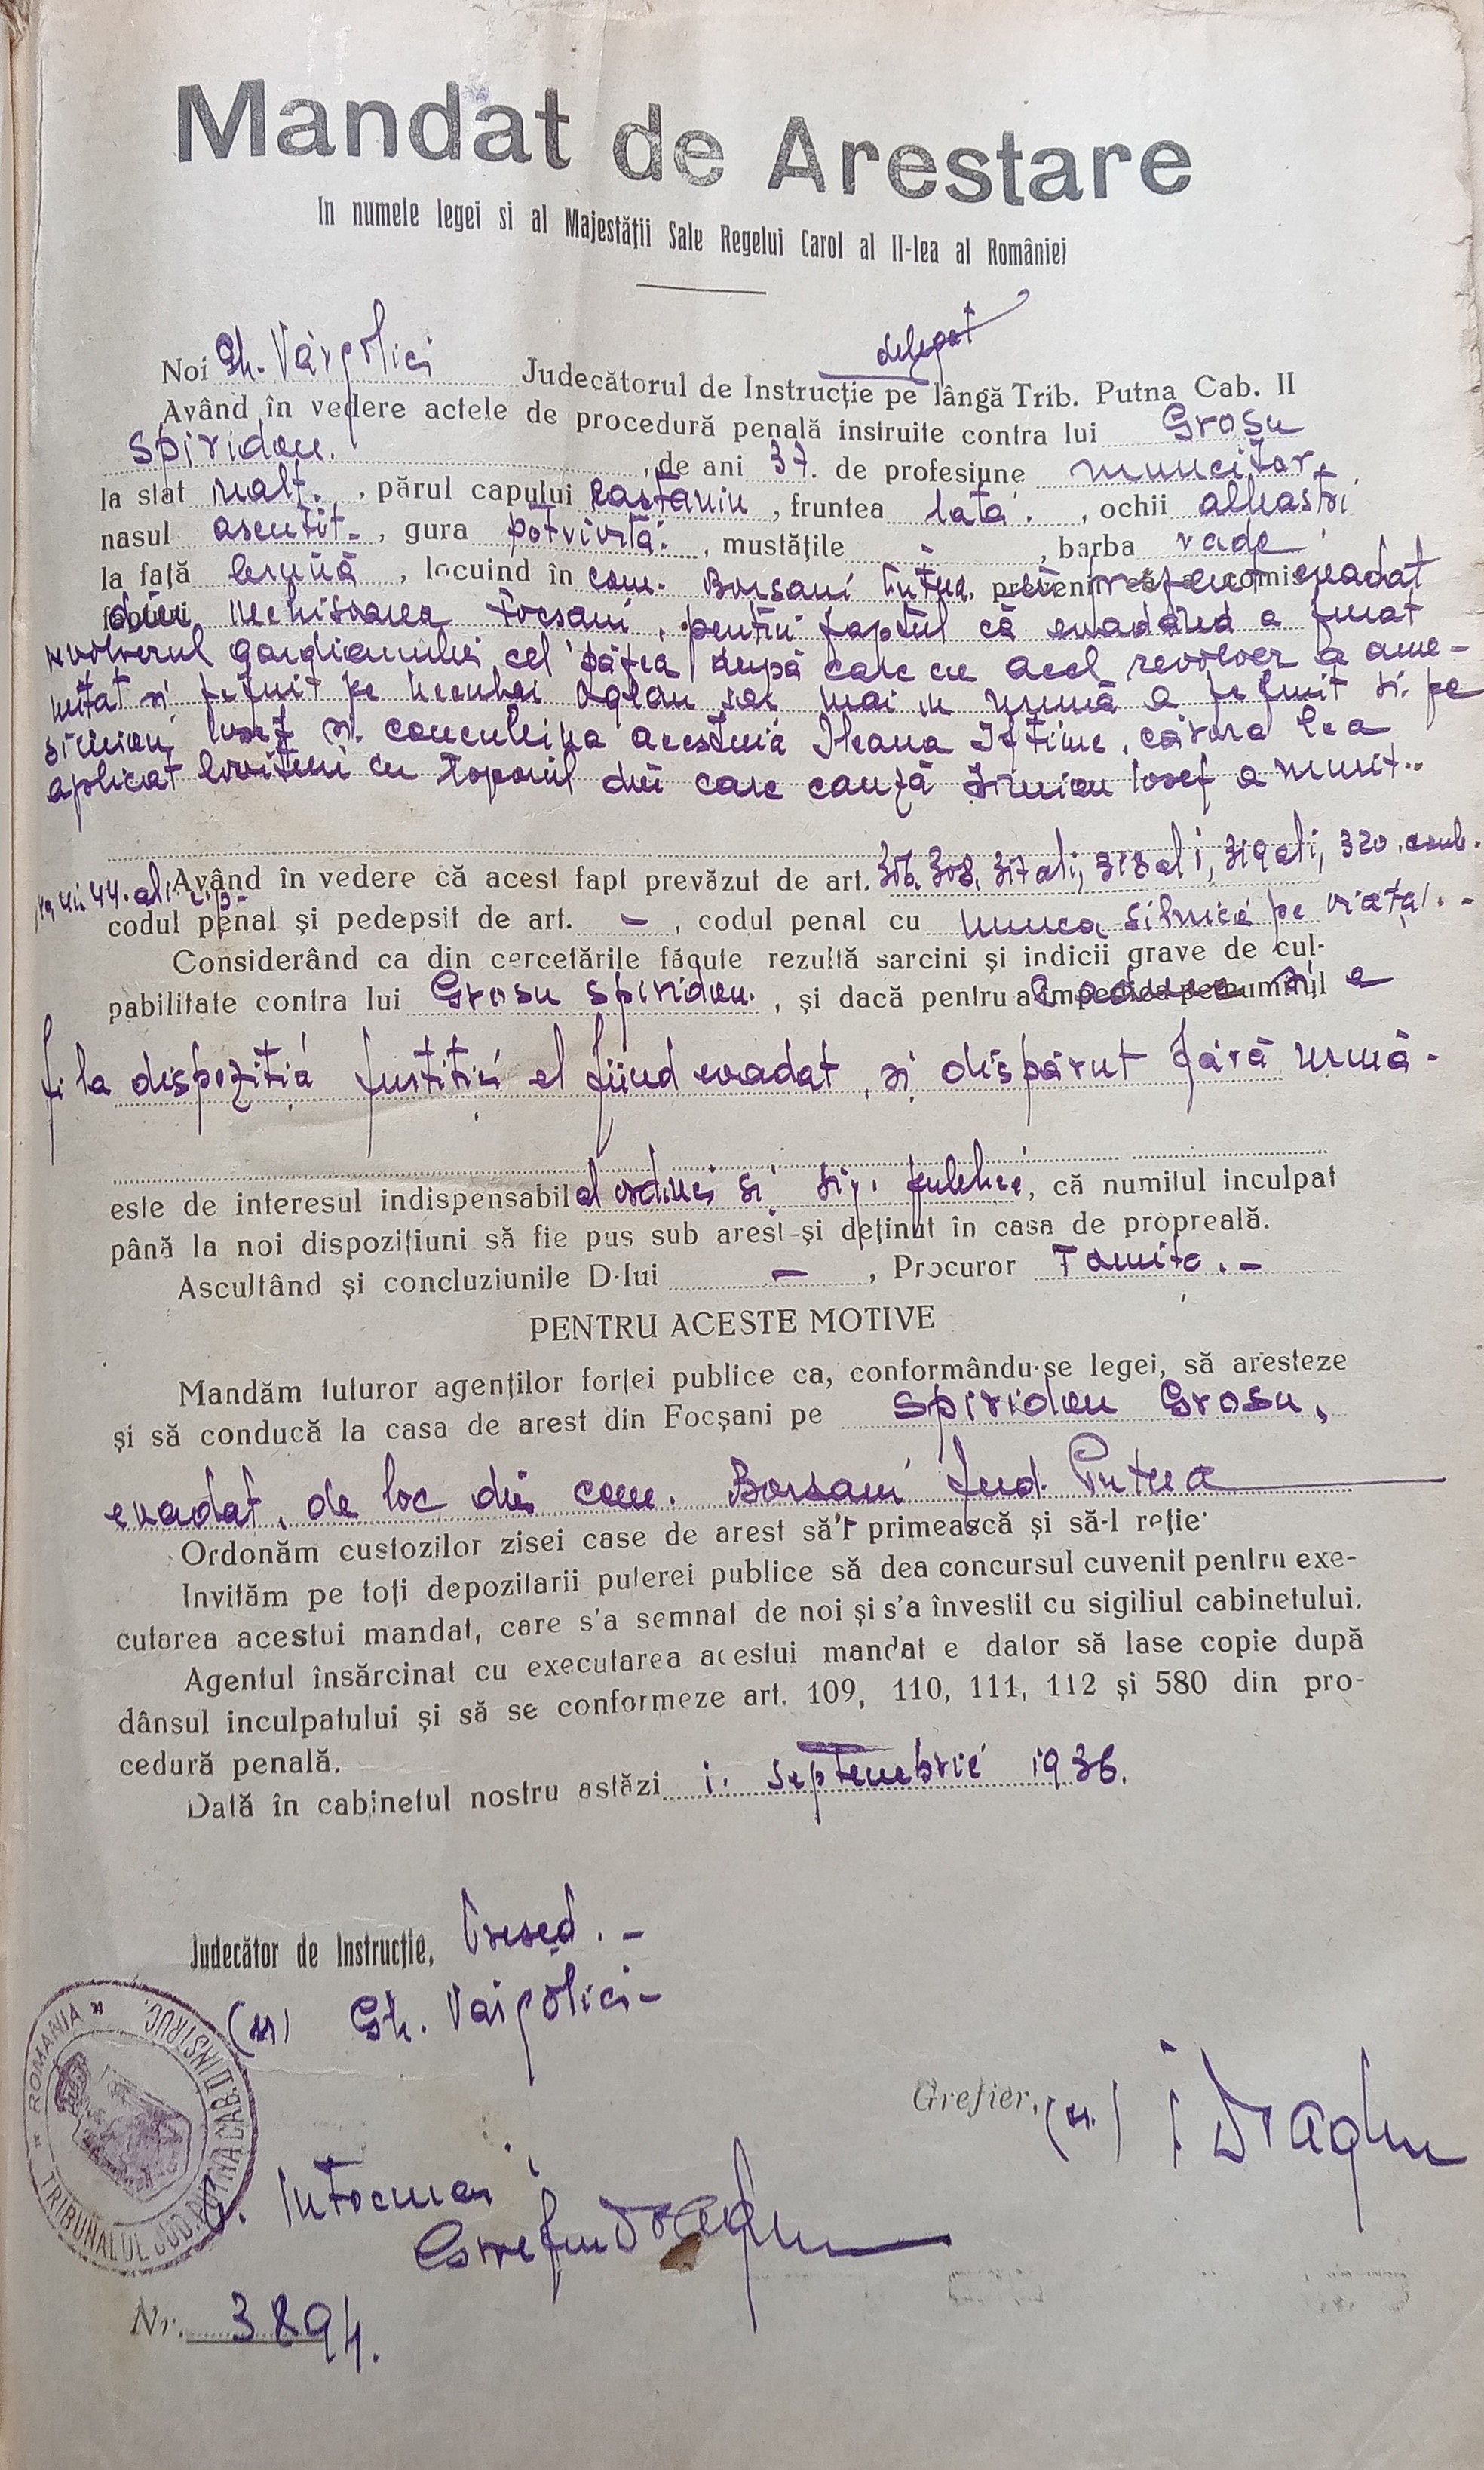 Mandat de Arestare
In numele legei si al Majestății Sale Regelui Carol al II-lea al României
Noi Gh. Vârgolici Judecătorul de Instrucție delegat pe lângă Trib. Putna Cab. II
Având în vedere actele de procedură penală instruite contra lui Grosu
Spiridon. , de ani 37. de profesiune muncitor,
la stat inalt. , părul capului castaniu , fruntea lată. , ochii albastri
nasul ascutit. , gura potrivită. , mustățile – , barba rade
la față , locuind în com. Borsani Putna, prezent evadat
din inchisoarea Focsani, pentru faptul că evadând a furat
revolverul gardianului după care cu acel revolver a ame-
nitat si pe mai in urmă a si pe
Simion Iosef si concubina acestuia Ileana Iftime, cărora le a
aplicat lovituri cu toporul din care cauză Simion Iosef a murit..
Având în vedere că acest fapt prevăzut de art. 308, 317 al i, 318 al i, 319 al i, 320, comb.
codul penal și pedepsit de art. – , codul penal cu munca silnică pe viată. -
Considerând ca din cercetările făcute rezultă sarcini și indicii grave de cul-
pabilitate contra lui Grosu Spiridon. , și dacă pentru a
fi la dispozitia Justitiei el fiind evadat, si dispărut fără urmă -
este de interesul indispensabil al ordinei si sig. publice, că numitul inculpat
până la noi dispozițiuni să fie pus sub arest și deținut în casa de propreală.
Ascultând și concluziunile D-lui – , Procuror Tomita. -
PENTRU ACESTE MOTIVE
Mandăm tuturor agenților forței publice ca, conformându-se legei, să aresteze
și să conducă la casa de arest din Focșani pe Spiridon Grosu,
evadat, de loc din com. Borsani Jud. Putna
Ordonăm custozilor zisei case de arest să'l primească și să-l reție
Invităm pe toți depozitarii puterei publice să dea concursul cuvenit pentru exe-
cutarea acestui mandat, care s'a semnat de noi și s'a învestit cu sigiliul cabinetului.
Agentul însărcinat cu executarea acestui mandat e dator să lase copie după
dânsul inculpatului și să se conformeze art. 109, 110, 111, 112 și 580 din pro-
cedură penală.
Dată în cabinetul nostru astăzi 1. Septembrie 1936.
Judecător de Instrucție,
(ss) Gh. Vârgolici -
Grefier, (ss.) I Draghu
ROMANIA
TRIBUNALUL JUD. PUTNA CAB. II INSTRUC.
Nr. 3894.